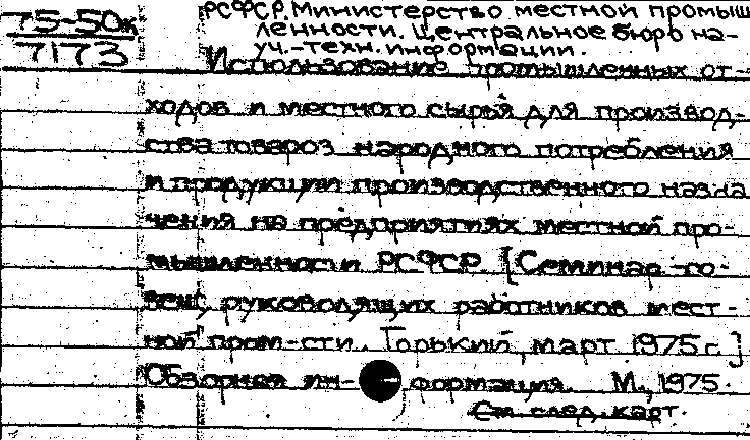 75-50к
7173
РСФСР. Министерство местной промыш
ленности. Центральное бюро на-
уч.-техн. информации.
Использование промышленных от-
ходов и местного сырья для производ-
ства товаров народного потребления
и продукции производственного назна
чения на предприятиях местной про-
мышленности РСФСР [Семинар-со-
вещ. руководящих работников мест-
ной пром-сти. Горький, март 1975 г.]
Обзорная ин- формация. М., 1975.
См. след. карт.